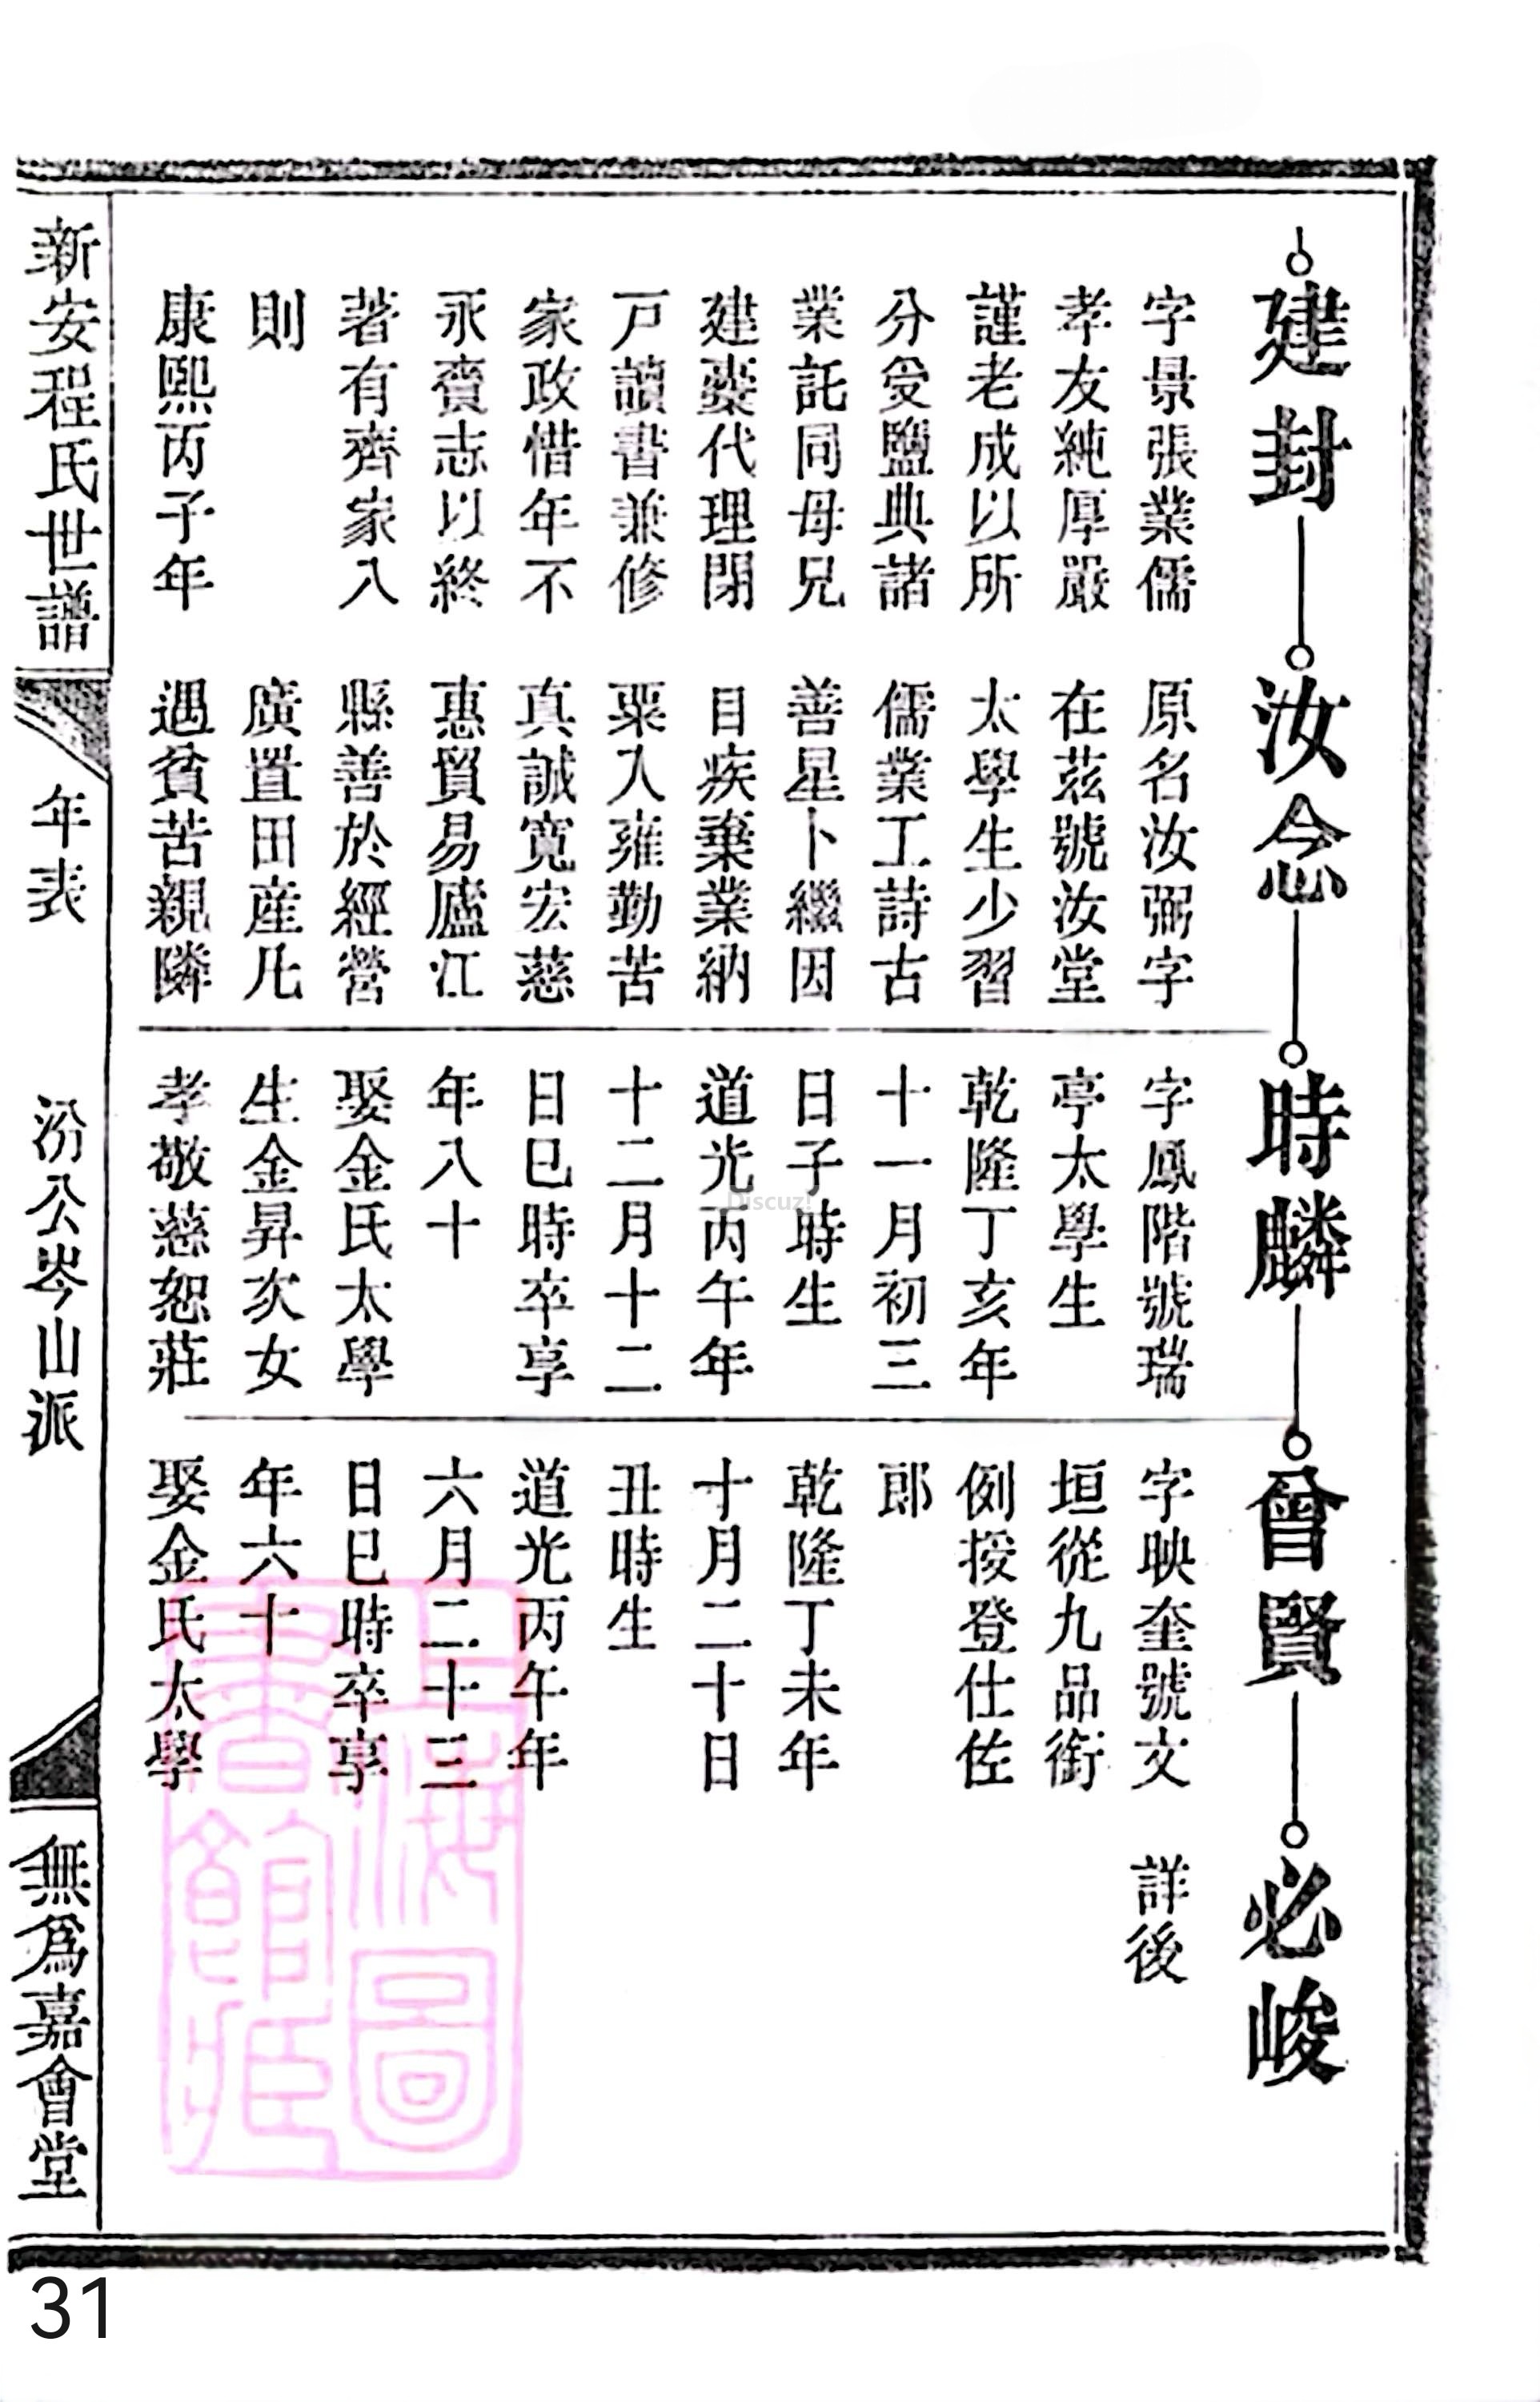 建封
字景張業儒
孝友純厚嚴
謹老成以所
分受鹽典諸
業託同母兄
建藥代理閉
戸讀書兼修
家政惜年不
永賫志以終
著有齊家八
則
康熙丙子年
汝念
原名汝弼字
在茲號汝堂
太學生少習
儒業工詩古
善星卜繼因
目疾棄業納
粟入雍勤苦
真誠寬宏慈
惠貿易廬江
縣善於經營
廣置田産凡
遇貧苦親隣
時麟
字鳳階號瑞
亭太學生
乾隆丁亥年
十一月初三
日子時生
道光丙午年
十二月十二
日巳時卒享
年八十
娶金氏太學
生金昇次女
孝敬慈恕莊
曾賢
字映奎號文
垣從九品銜
例授登仕佐
郎
乾隆丁未年
十月二十日
丑時生
道光丙午年
六月二十三
日巳時卒享
年六十
娶金氏太學
必峻
詳後
新安程氏世譜
年表
汾公岑山派
無爲嘉會堂
上海圖
書館藏
Discuz!
31